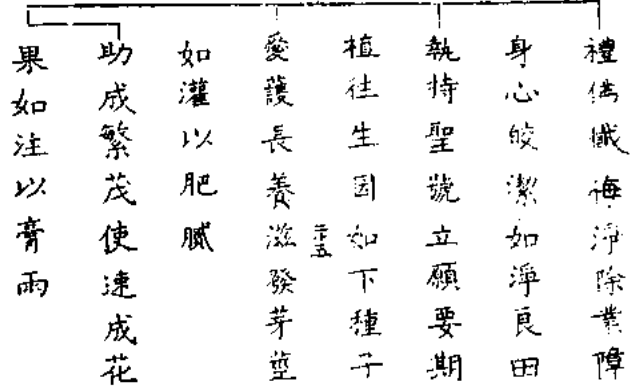 禮佛懺悔淨除業障
身心皎潔如淨良田
執持聖號立願要期
植往生因如下種子
二五
愛護長養滋發芽莖
如灌以肥膩
助成繁茂使速成花
果如注以膏雨